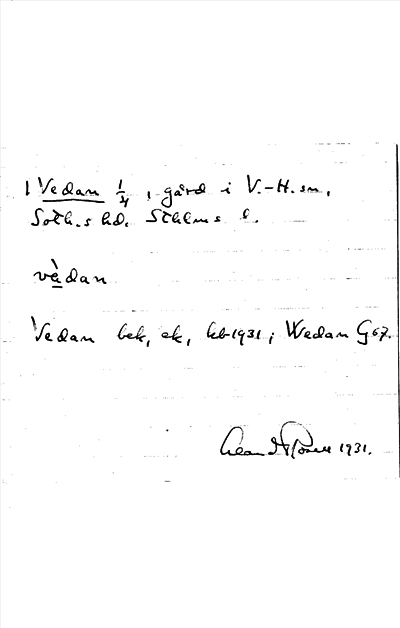 1 Vedan 1/4, gård i V.-H. sn,
Soth.s hd. Sthlms l.
vèdan
Vedan bek, ek, kb 1931; Wedan G 67.
1931.